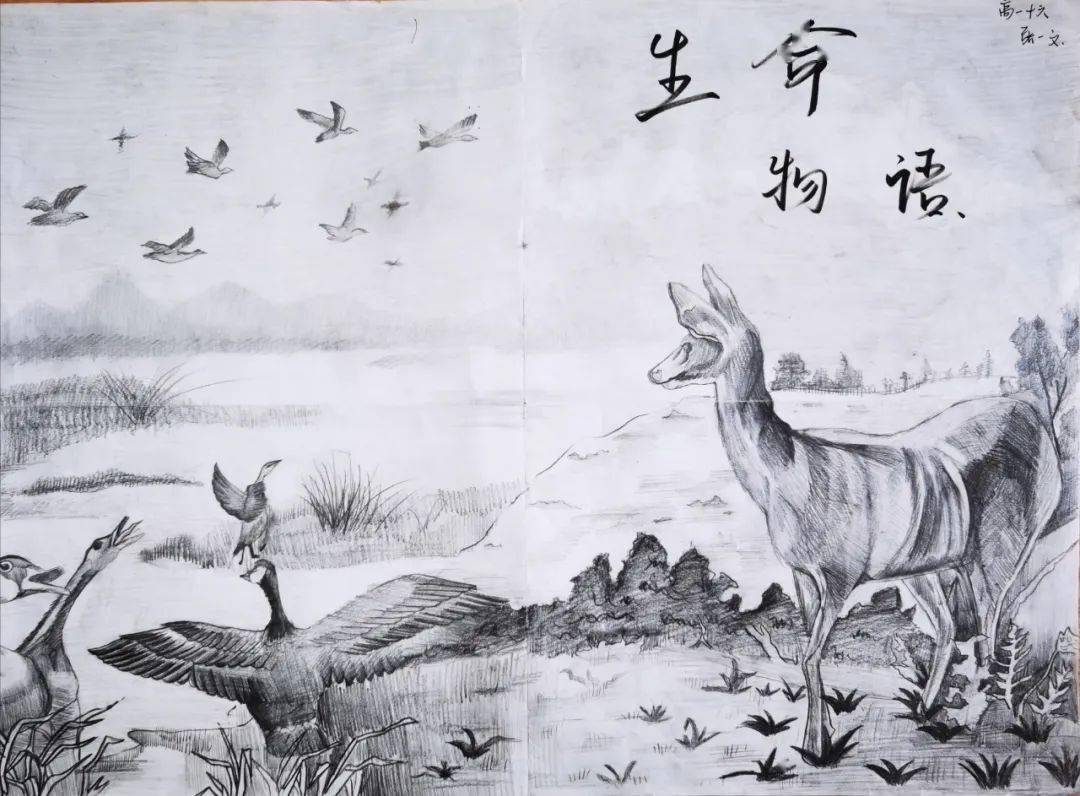 生命
物语
高一十六
张一文